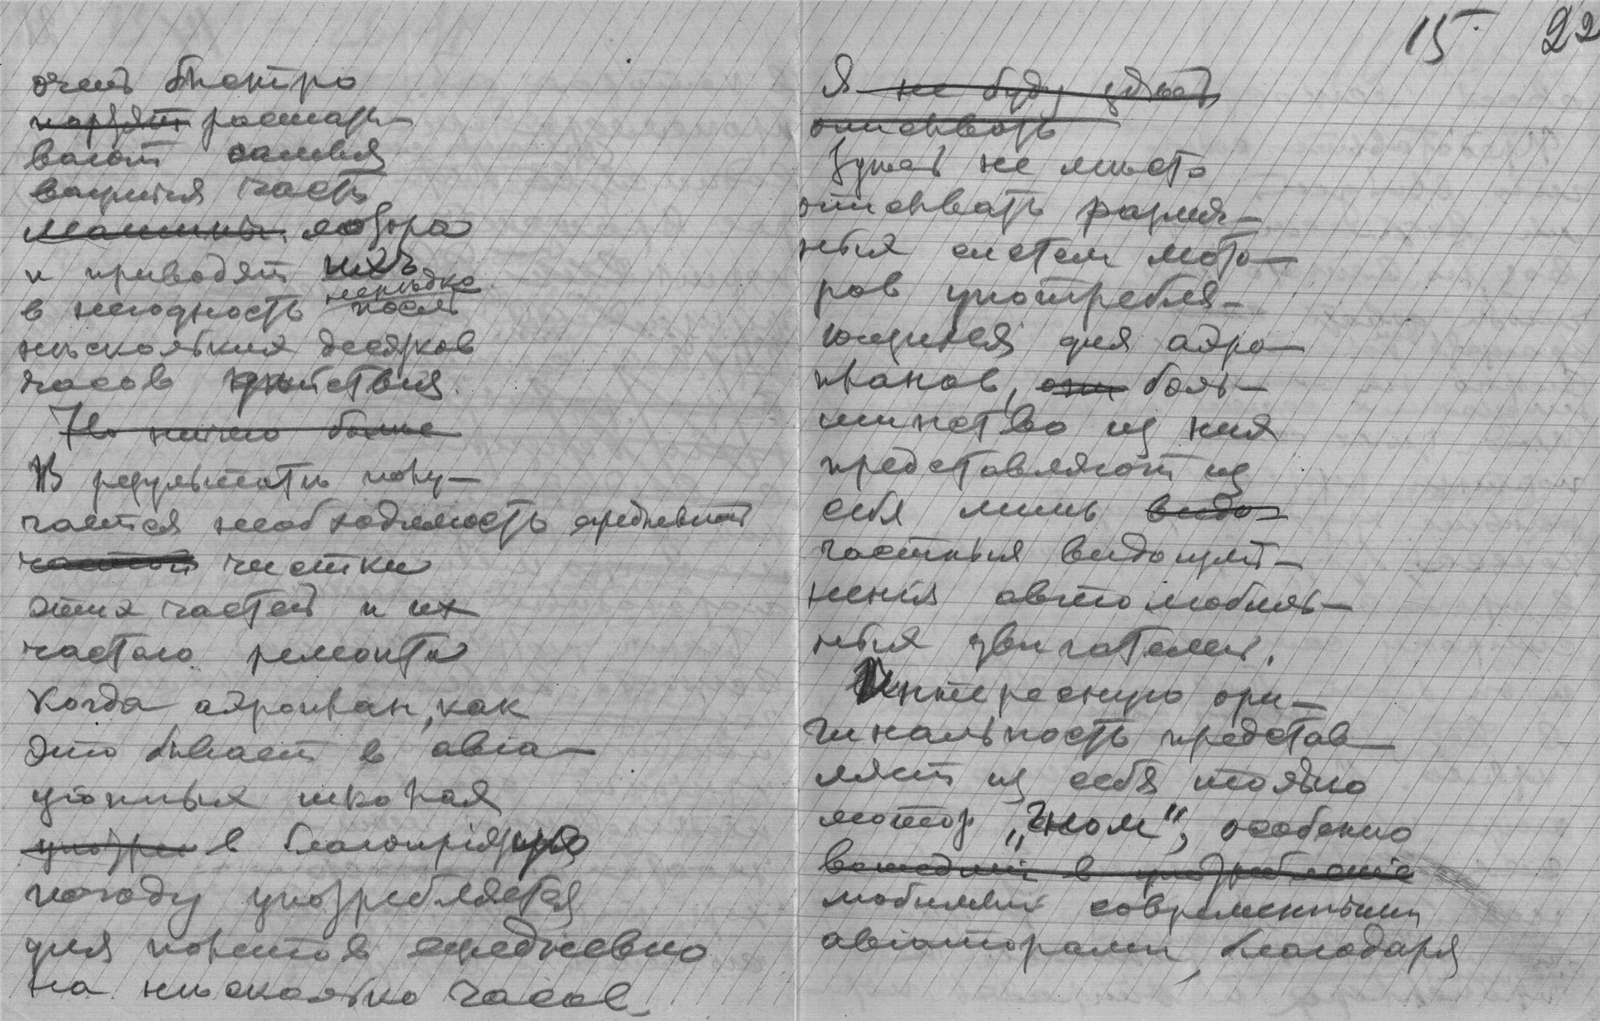 очень быстро
портят расшаты-
вают самыя
важныя части
машины. мотора
и приводят ихъ
нередко
в негодность после
несколькия десятков
часов действия.
Но ничто более
В результате полу-
чается необходимость ежедневной
частой чистки
этих частей и их
частаго ремонта
Когда аэроплан, как
это бывает в авіа-
ціонных школах
употреб в благопріятную
погоду употребляется
для полетов ежедневно
на несколько часов
15 22
Я не буду здесь
описывать
Здесь не место
описывать различ-
ныя систем мото-
ров употребля-
ющихся для аэро-
планов, они боль-
шинство из них
представляют из
себя лишь видо-
частныя видоизме-
ненія автомобиль-
ныя двигателей.
Интересную ори-
гинальность представ-
ляет из себя только
мотор „Гном", особенно
вошедшій в употребленіе
любимый современными
авіаторами, благодаря